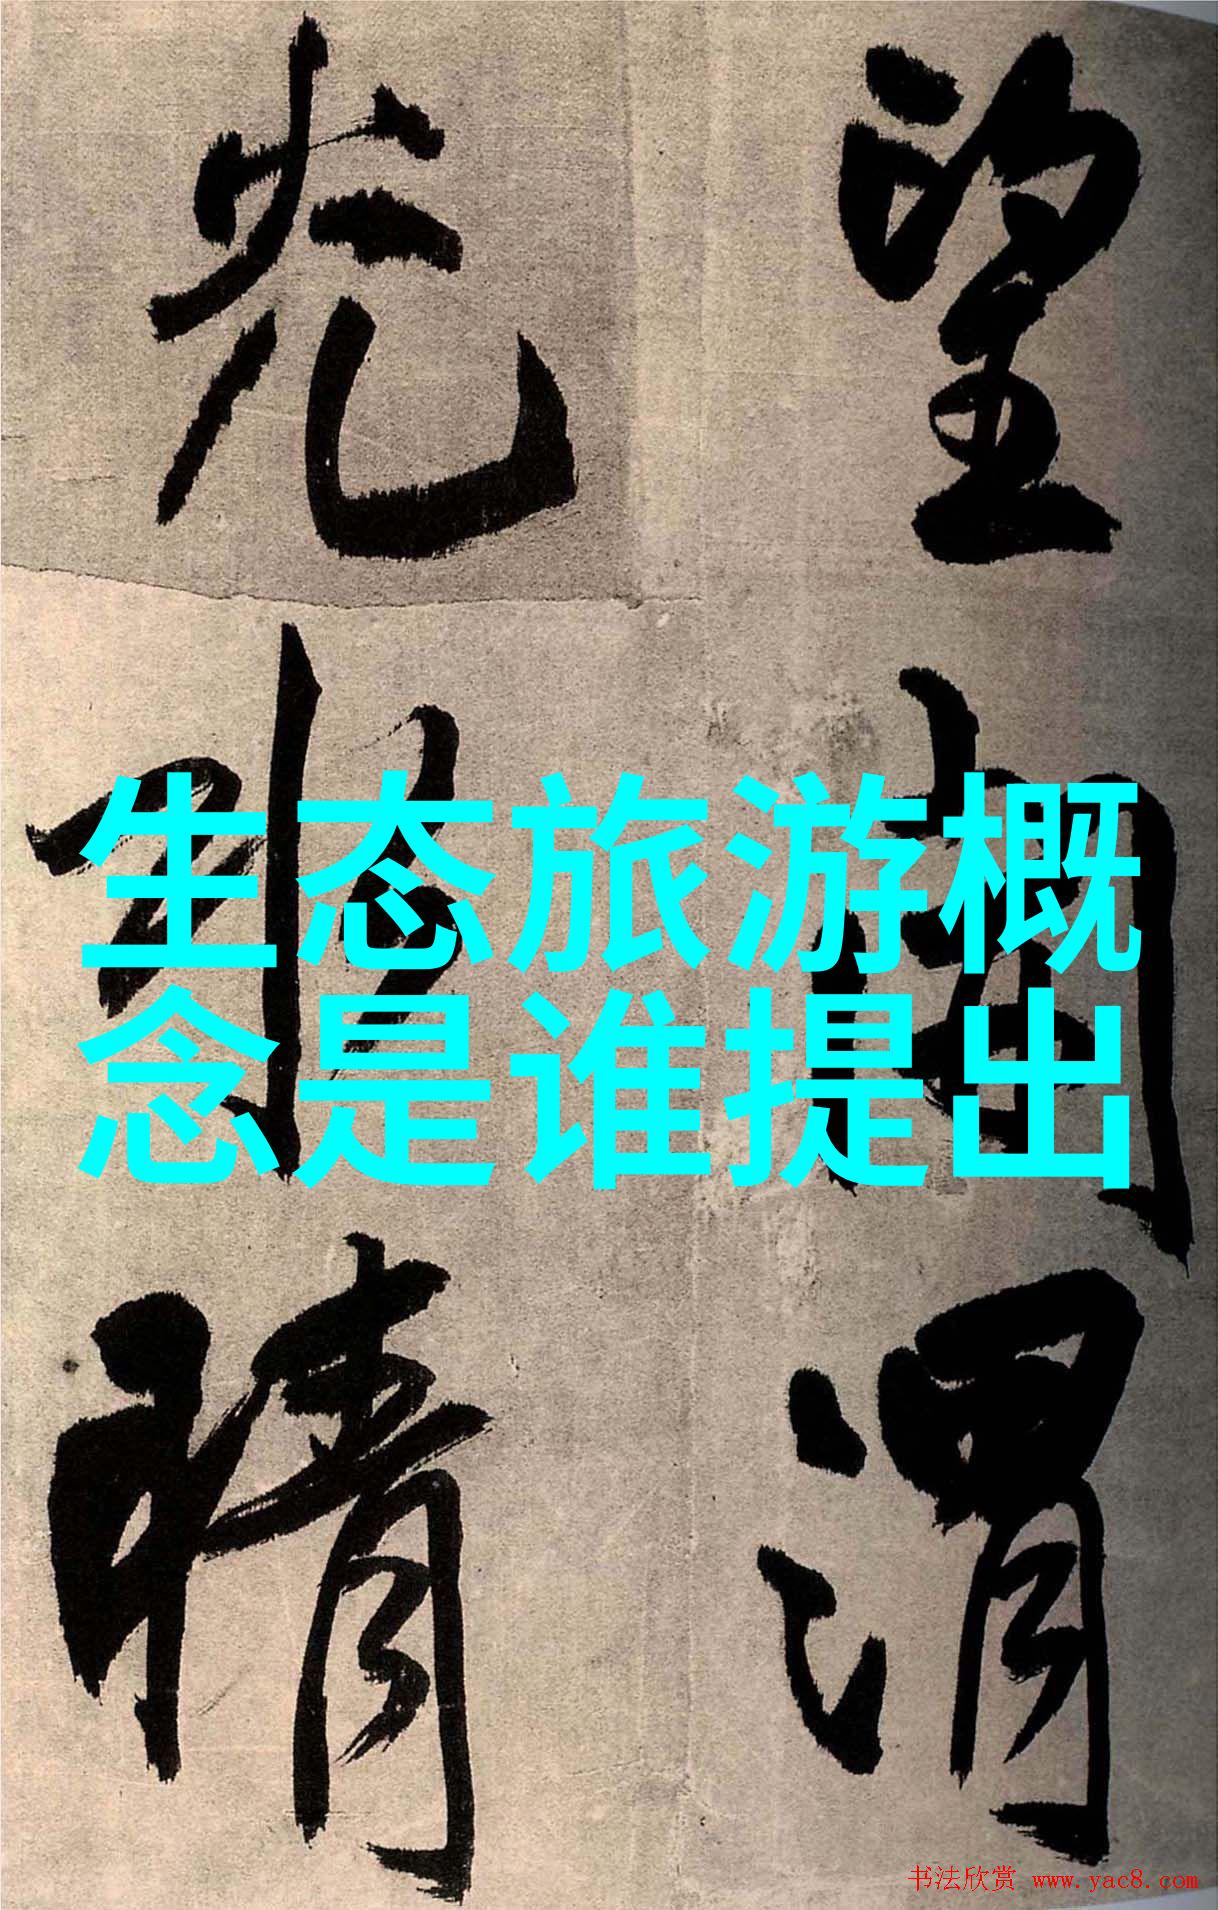 望渭
光水晴
生态旅游概
念是谁提出
书法欣赏 www.yac8.com